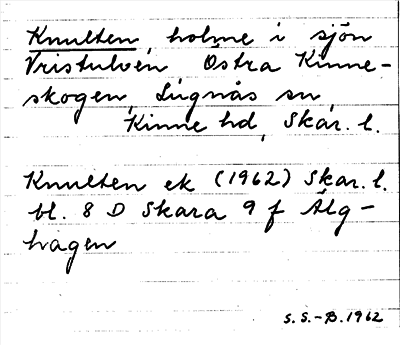 Knulten, holme i sjön
Vristulven Östra Kinne-
skogen, Lugnås sn,
Kinne hd, Skar. l.
Knulten ek (1962) Skar. l.
bl. 8 D Skara 9 f Älg-
hagen
S. S.-B. 1962